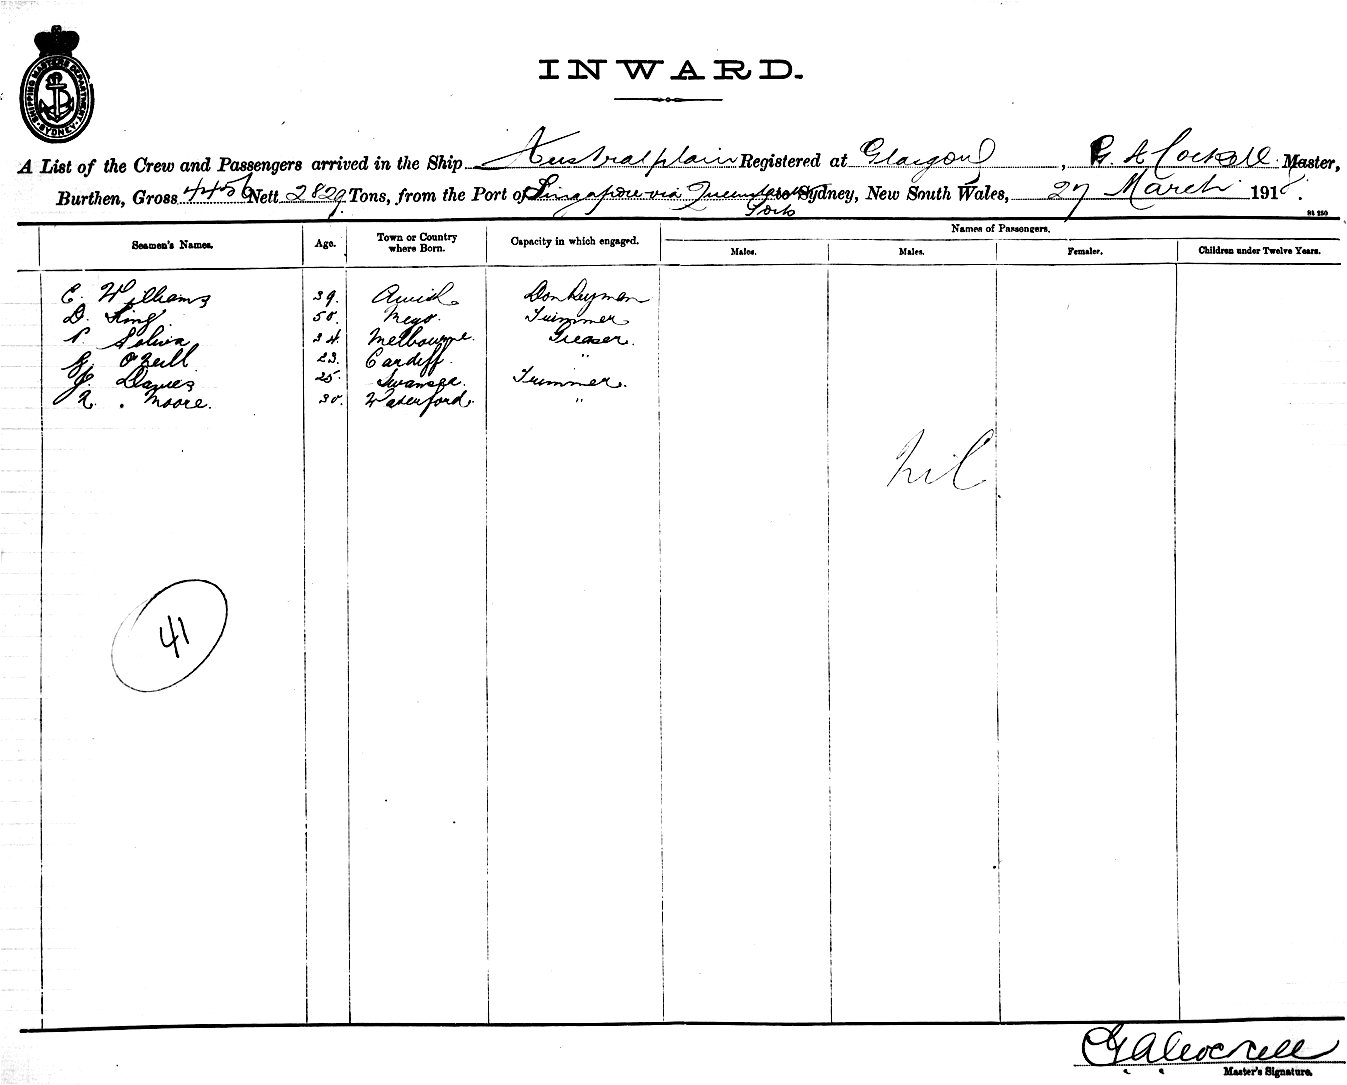 SHIPPING MASTERS DEPARTMENT SYDNEY
INWARD.
A List of the Crew and Passengers arrived in the Ship Australplain Registered at Glasgow, G A Cockrell Master,
Burthen, Gross 4456 Nett 2829 Tons, from the Port of Singapore via Queensland Ports to Sydney, New South Wales, 27 March 1918.
Seamen's Names. Age. Town or Country where Born. Capacity in which engaged. Names of Passengers.
Males. Males. Females. Children under Twelve Years.
C. Williams 39. Donkeyman
D. King 50. Trimmer
Silva 34. Melbourne. Greaser.
G. O'Neill 23. Cardiff. "
J. Davies 25. Swansea. Trimmer.
Moore. 30. Waterford. "
Nil
41
G A Cockrell
Master's Signature.